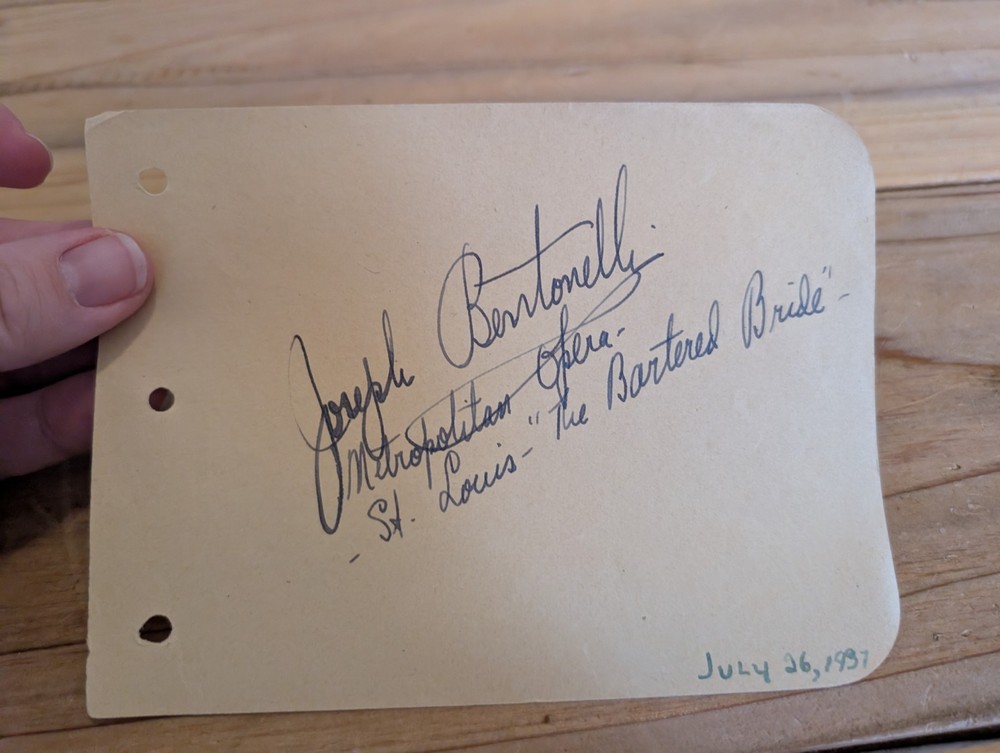 Joseph Bentonelli
Metropolitan Opera-
- St. Louis - "The Bartered Bride" -
July 26, 1937